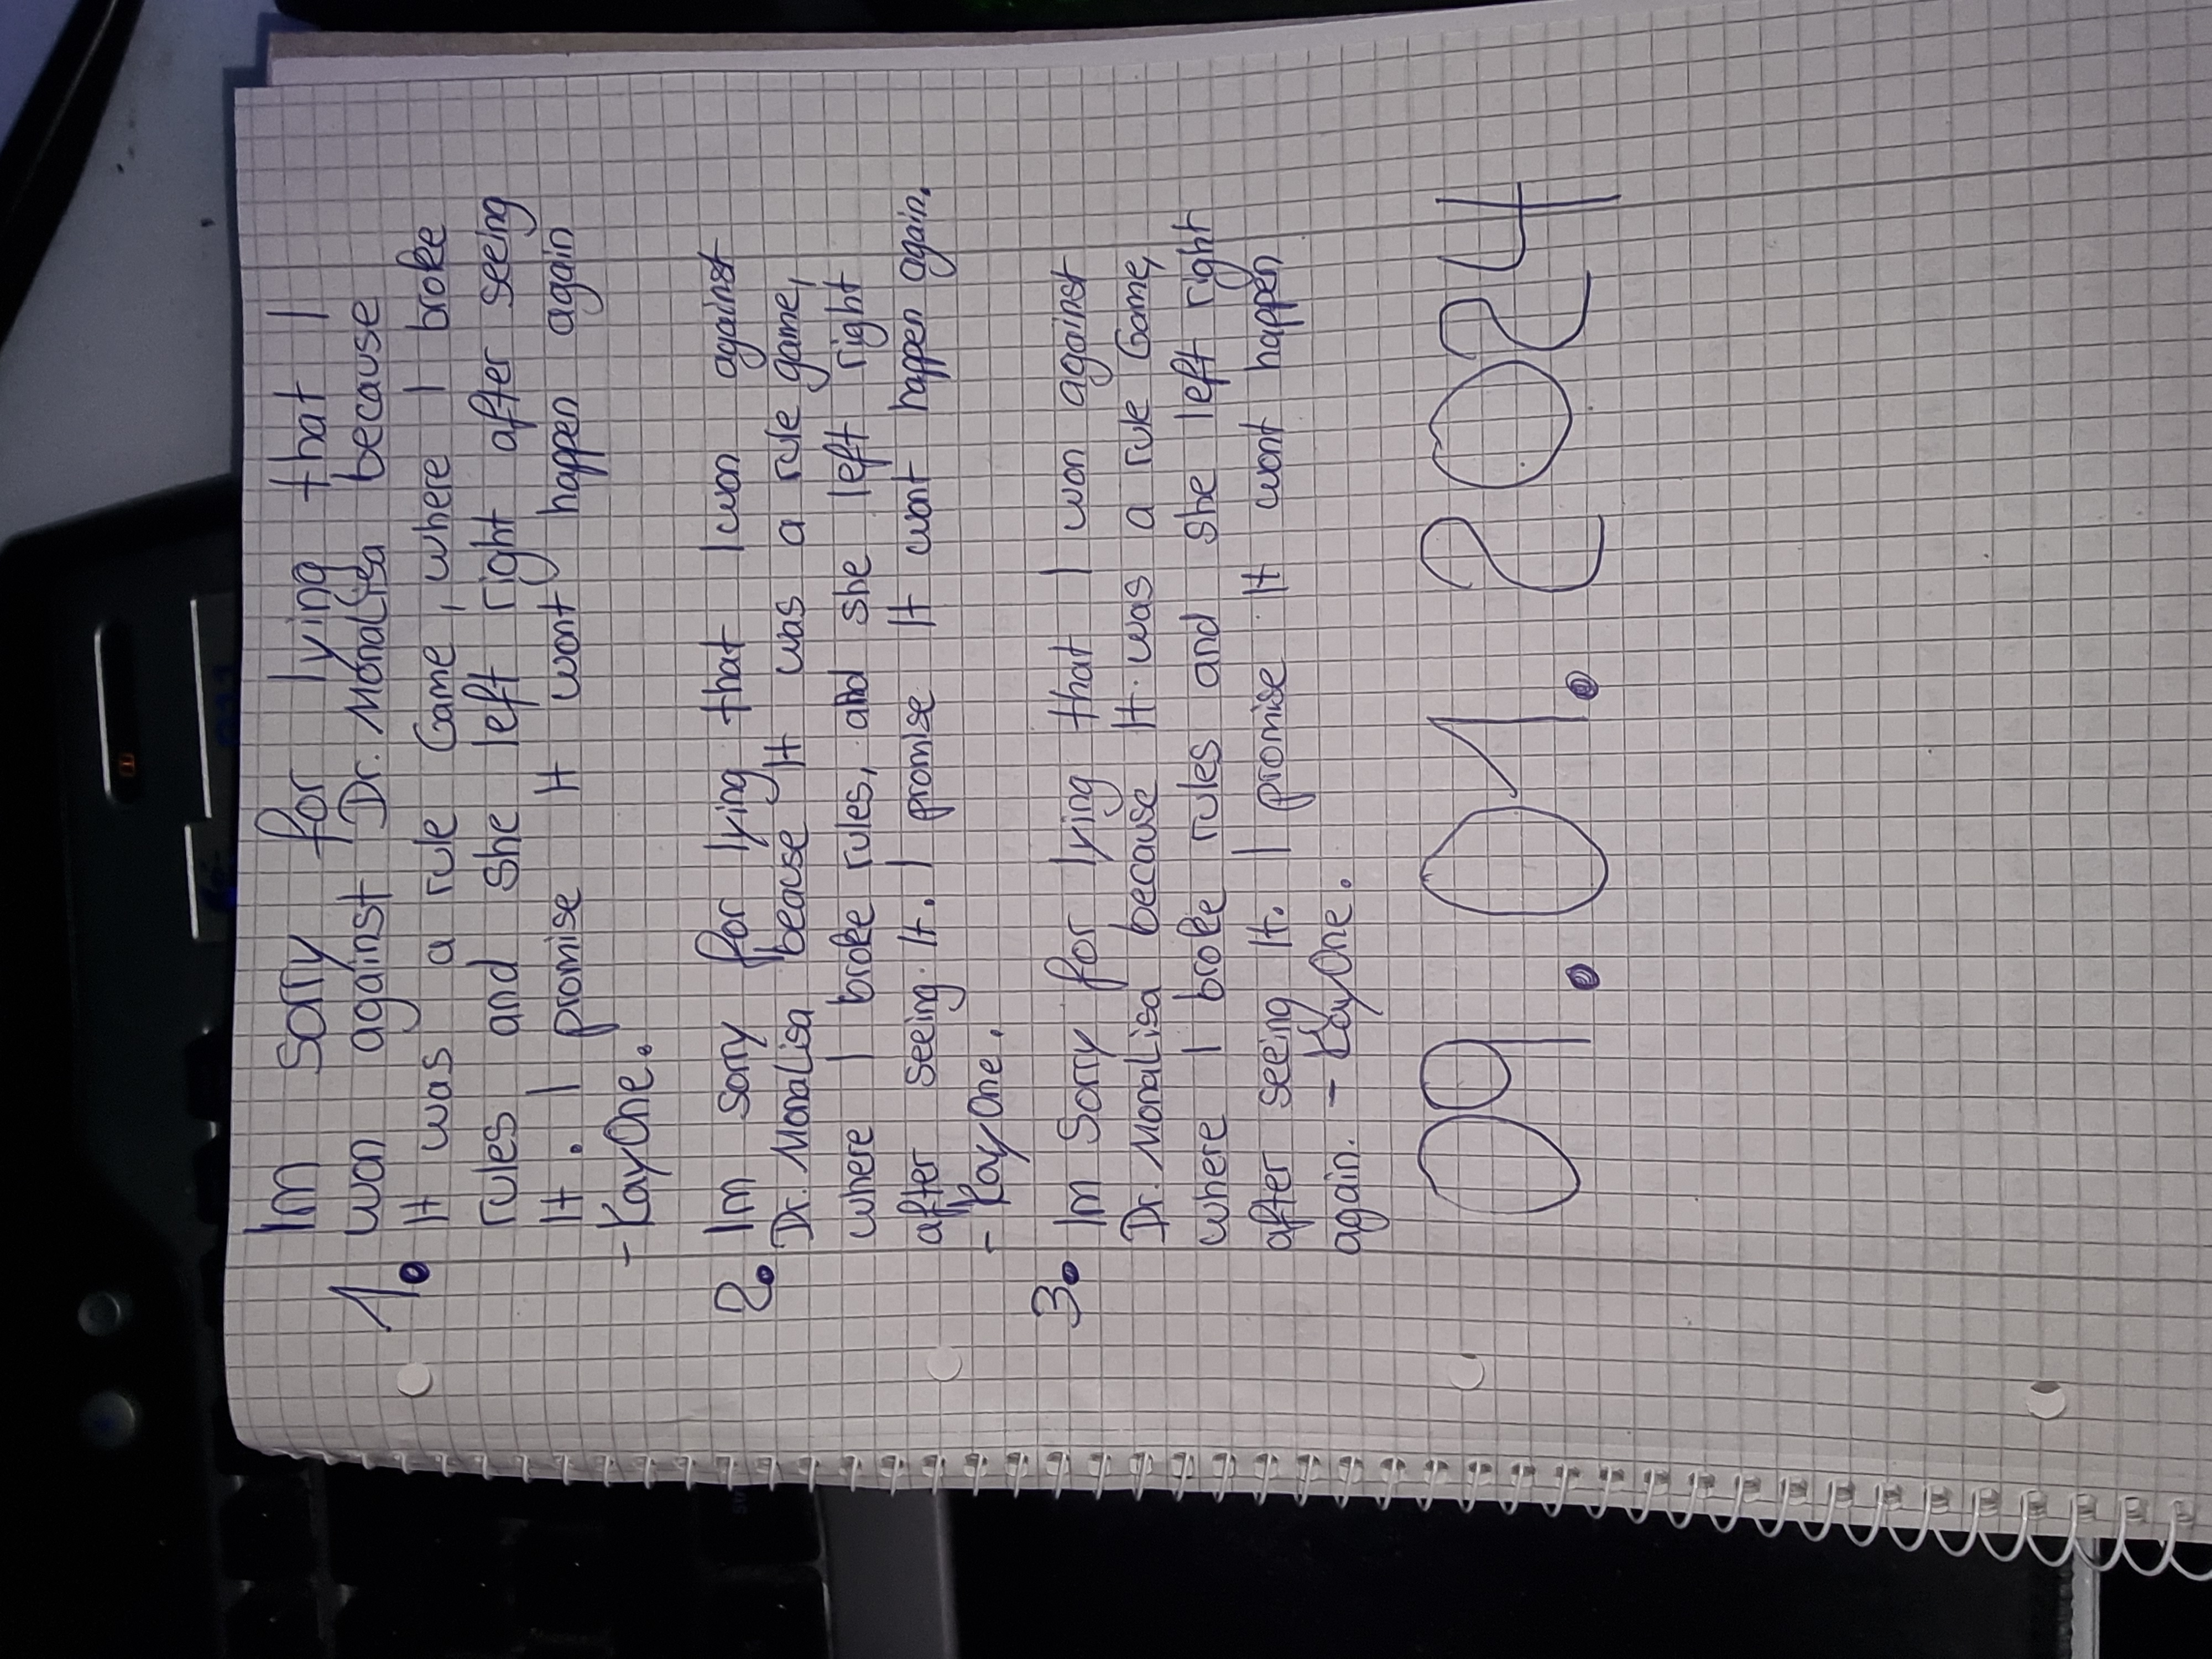 Im sorry for lying that I
1. won against Dr. MonaLisa because
It was a rule Game, where I broke
rules and she left right after seeing
It. I promise It wont happen again
- KayOne.
2. Im sorry for lying that I won against
Dr. MonaLisa beacuse It was a rule game,
where I broke rules, and she left right
after seeing It. I promise It wont happen again.
- KayOne.
3. Im Sorry for lying that I won against
Dr. MonaLisa because It was a rule Game,
where I broke rules and she left right
after seeing It. I promise It wont happen
again. - KayOne.
09.01.2024